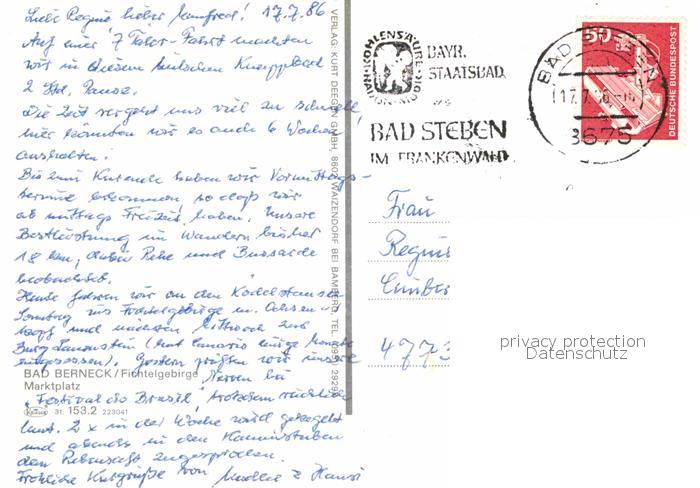 Liebe Regine, lieber Manfred! 17.7.86
Auf einer 7 Täler-Fahrt machten
wir in diesem hübschen Kneippbad
2 Std. Pause.
Die Zeit vergeht uns viel zu schnell,
hier könnten wir es auch 6 Wochen
aushalten.
Bis zum Kurende haben wir Vormittags-
termine bekommen, so daß wir
ab mittags Freizeit haben. Unsere
Bestleistung im Wandern bisher
18 km, dabei Rehe und Bussarde
beobachtet.
Heute fahren wir an den
Sonntag ins Fichtelgebirge m. Ochsen-
kopf und nächsten Mittwoch zur
Burg Lauenstein (
eingesessen). Gestern prüften wir unsere
Nerven bei
"Festival do Brasil", trotzdem
2 x in der Woche wird gekegelt
und abends in den Kaminstuben
dem Rebensaft zugesprochen.
Fröhliche Kurgrüße von & Hansi
BAD BERNECK/Fichtelgebirge
Marktplatz
31. 153.2 223041
VERLAG: KURT DEEGEN GMBH, 8602 WAIZENDORF BEI BAMBERG, TEL. 0951/ 2929
KOHLENSÄURE
RADON · MOOR
BAYR.
STAATSBAD
BAD STEBEN
IM FRANKENWALD
BAD STEBEN
17.7.86
8675
50
DEUTSCHE BUNDESPOST
Frau
Regine
477
privacy protection
Datenschutz